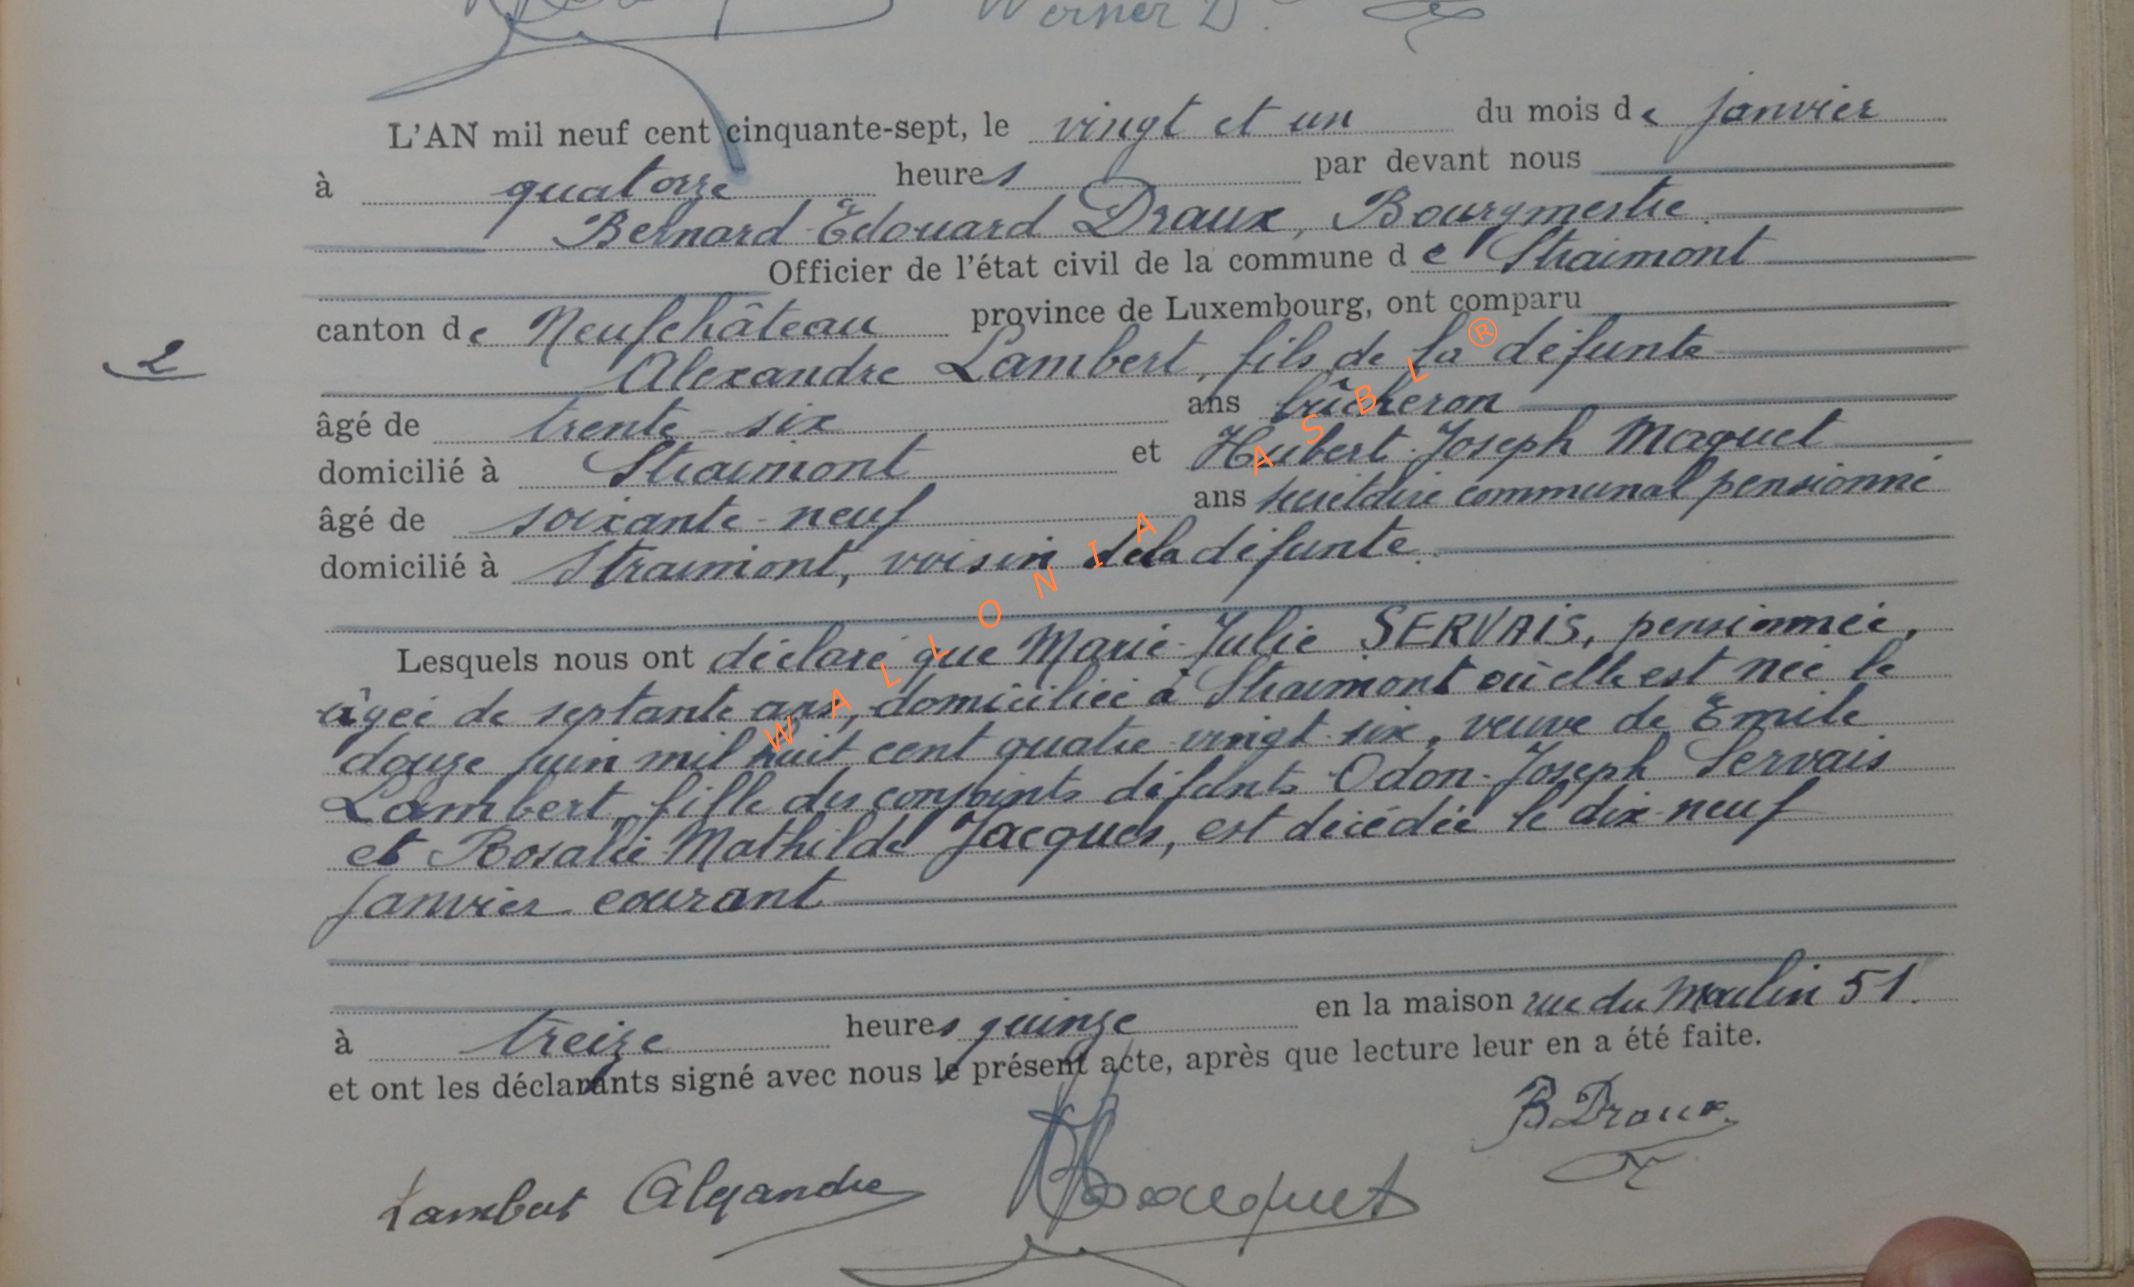 Werner D.
L'AN mil neuf cent cinquante-sept, le vingt et un du mois de janvier
à quatorze heures par devant nous
Bernard Edouard Draux, Bourgmestre
Officier de l'état civil de la commune de Straimont
canton de Neufchâteau province de Luxembourg, ont comparu
2
Alexandre Lambert, fils de la défunte
âgé de trente-six ans bûcheron
domicilié à Straimont et Hubert Joseph Maquet
âgé de soixante-neuf ans secrétaire communal pensionné
domicilié à Straimont, voisin de la défunte.
Lesquels nous ont déclaré que Marie-Julie SERVAIS, pensionnée,
âgée de septante ans, domiciliée à Straimont où elle est née le
douze juin mil huit cent quatre-vingt-six, veuve de Emile
Lambert, fille des conjoints défunts Odon-Joseph Servais
et Rosalie Mathilde Jacques, est décédée le dix-neuf
janvier courant
à treize heures quinze en la maison rue du Moulin 51.
et ont les déclarants signé avec nous le présent acte, après que lecture leur en a été faite.
B Draux
Lambert Alexandre
WALLONIA ASBL ®